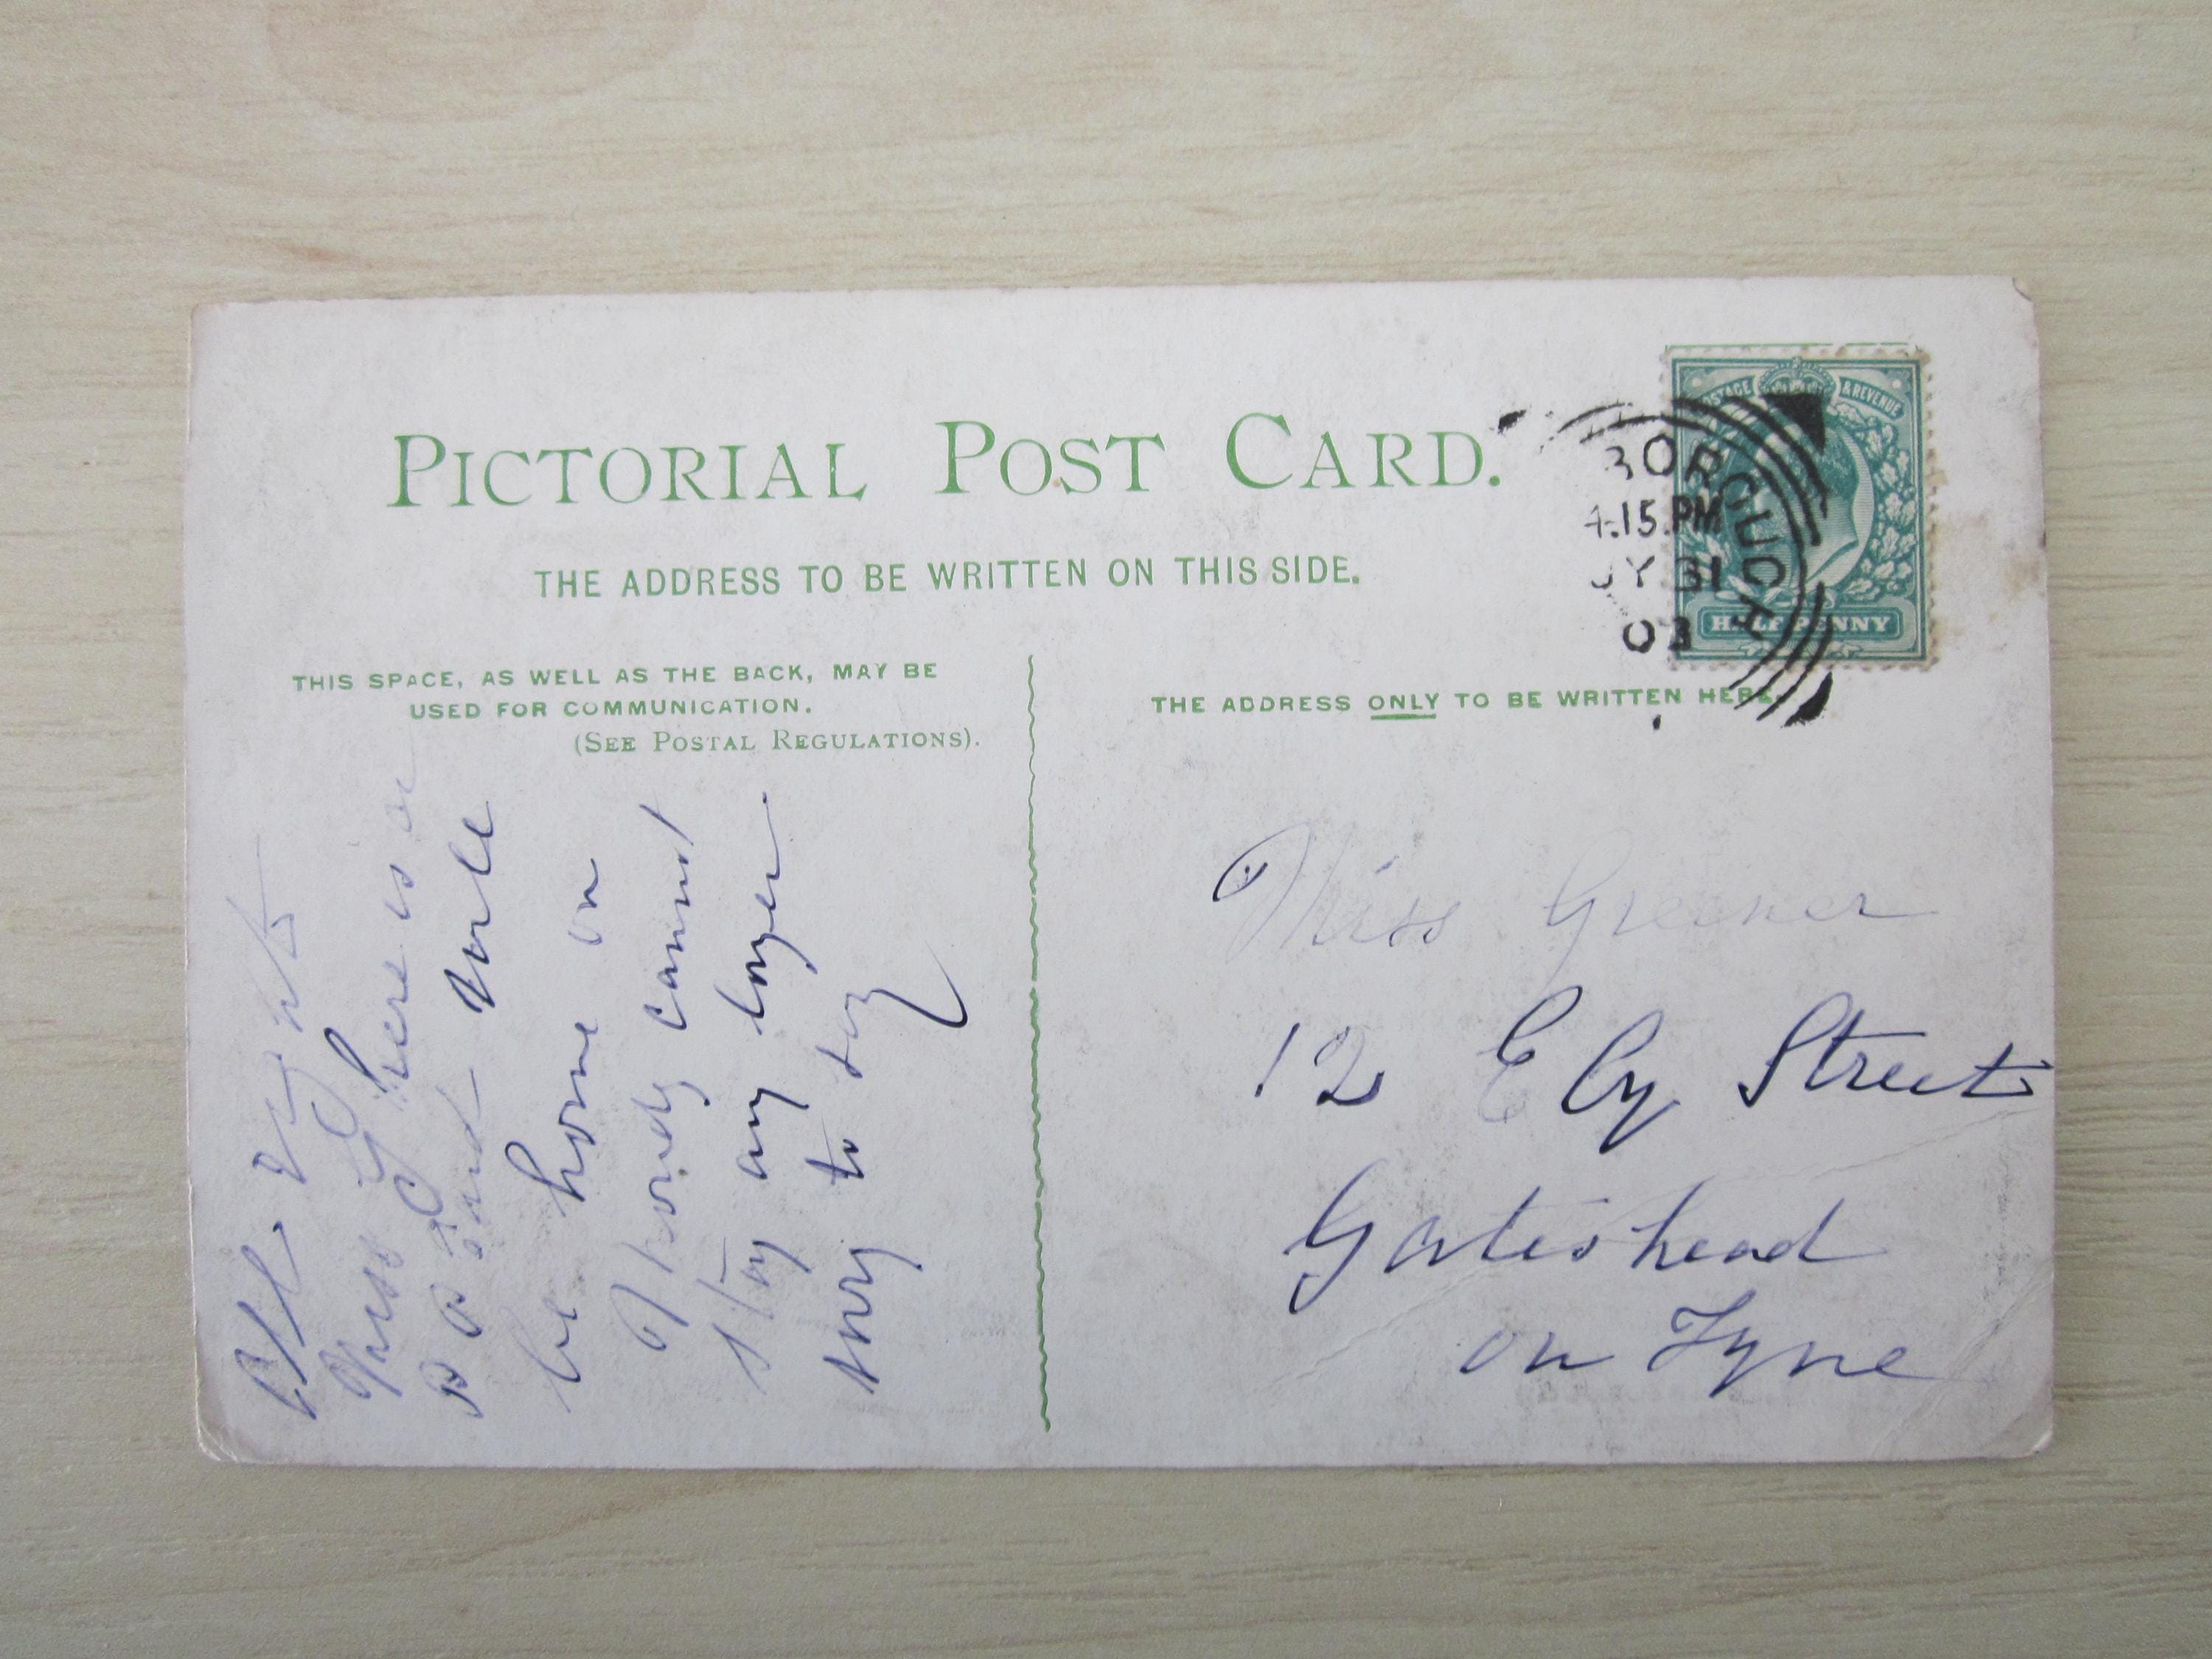 PICTORIAL POST CARD.
THE ADDRESS TO BE WRITTEN ON THIS SIDE.
THIS SPACE, AS WELL AS THE BACK, MAY BE
USED FOR COMMUNICATION.
(SEE POSTAL REGULATIONS).
THE ADDRESS ONLY TO BE WRITTEN HERE.
POSTAGE & REVENUE
HALFPENNY
BOROUGH
4.15.PM
JY 31
03
Miss Greener
12 Ely Street
Gateshead
on Tyne
Miss G here is a
P P and
be home on
cannot
stay any longer
sorry to say